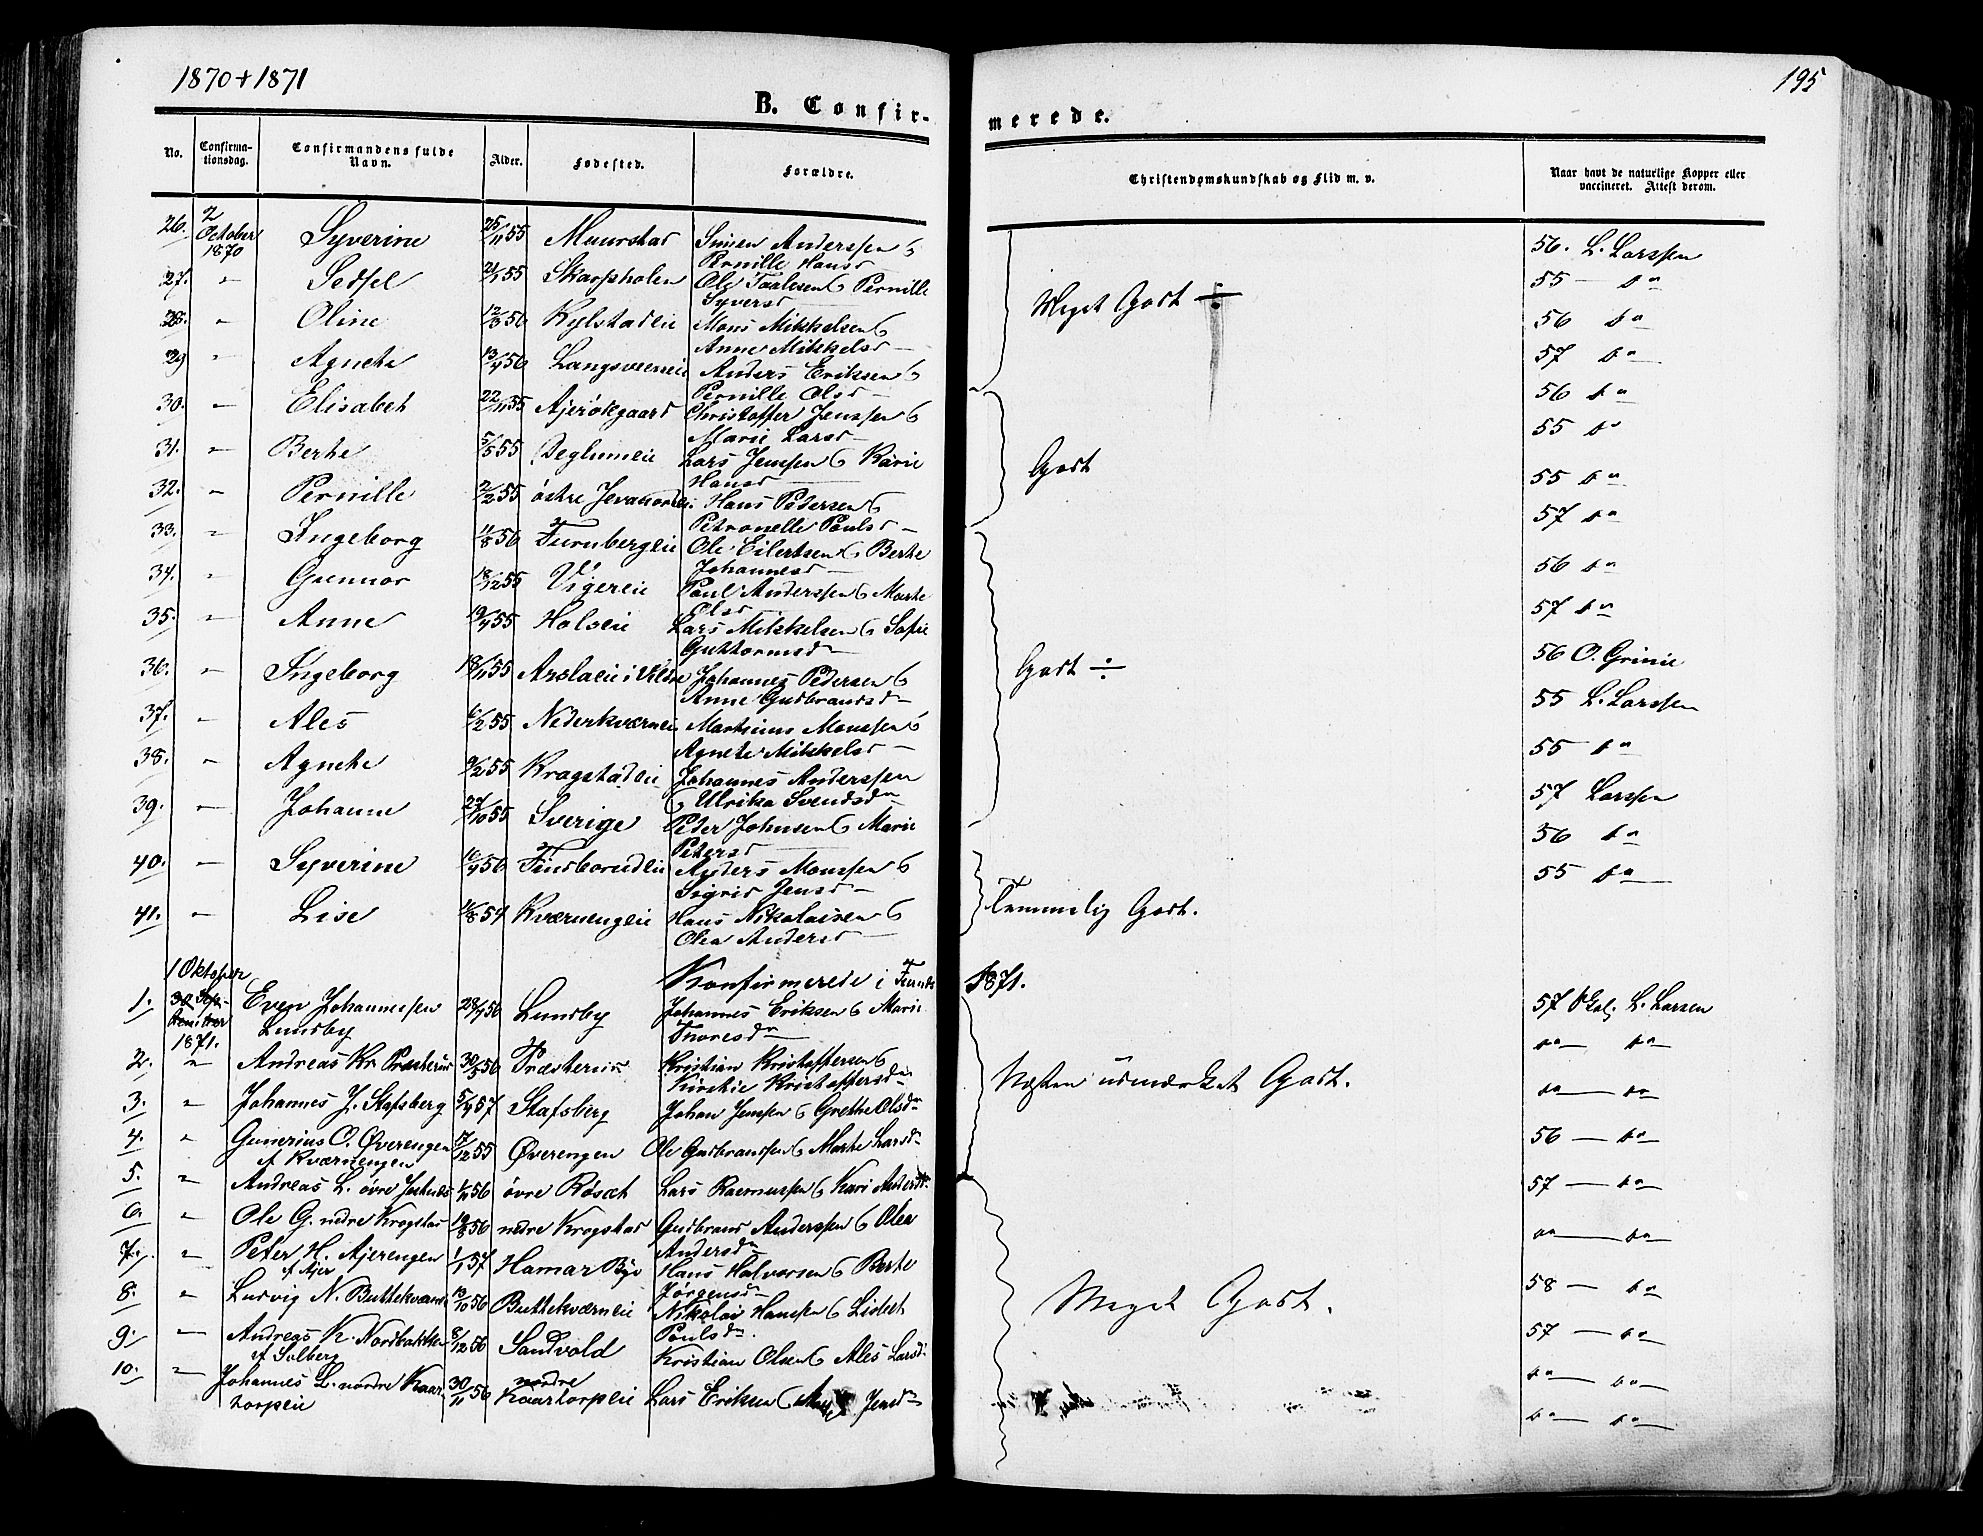 1870 + 1871
195
B. Confirmerede.
No. Confirmationsdag. Confirmandens fulde Navn. Alder. Fødested. Forældre. Christendomskundskab og Flid m. v. Naar havt de naturlige Kopper eller vaccineret. Attest derom.
26. 2 October 1870 Syverine 25/11 55 Muurstad Simen Anderssen & Pernille Hansd 56. L. Larssen
27. " Sedsel 55 Skarpholen Ole Taalesen & Pernille Syversd 55 — do
28. " Oline 12/3 56 Kylstadeie Mons Mikkelsen & Anne Mikkelsd — Meget Godt ÷ 56 do
29 " Agnethe 13/4 56 Langsveeneie Anders Eriksen & Pernille Olsd — 57 do
30. " Elisabet 22/11 55 Ajerødegaard Christoffer Jenssen & Marie Larsd — 56 do
31. " Berthe 5/5 55 Deglumeie Lars Jenssen & Karie Hansd — Godt 55 do
32. " Pernille 2/2 55 østre Jevanordeie Hans Pedersen & Petronelle Paulsd — 55 do
33. " Ingeborg 11/8 56 Furubergeie Ole Eilertsen & Berthe Johannesd — 57 do
34. " Gunnor 18/12 55 Vigereie Paul Anderssen & Marthe Olsd — 56 do
35. " Anne 19/4 55 Holseie Lars Mikkelsen & Sofie Guttormsdn 57 do
36. " Ingeborg 18/11 55 Arslaeie i Veldre Johannes Pedersen & Anne Gudbrandsd — Godt ÷ 56 O. Grinie
37. " Ales 6/2 55 Nederkværneie Martinus Monssen & Agnete Mikkelsd — 55 L. Larssen
38. " Agnethe 9/2 55 Kragstadeie Johannes Anderssen & Ulrika Svendsdn 55 do
39. — Johanne 27/10 55 Sverige Peder Johnsen & Marie Petersd — 57 Larssen
40. — Syverine 16/4 56 Findsbarudeie Anders Monssen & Sigrid Jensd — 56 do
41. " Lise 14/8 54 Kværnengeie Hans Nikolaisen & Olea Andersd — Temmelig Godt. 55 do
Konfirmerede i Furnes 1871.
1. 1 Oktober 30 September 1871. Even Johannessen Lundby 28/4 56 Lundby Johannes Eriksen & Marie Thoresdn 57 Vkal. L. Larsen
2. " Andreas Kr. Præsterud 30/5 56 Præsterud Kristian Kristoffersen & Kirstie Kristoffersdn Næsten udmærket Godt. do — do
3. " Johannes J. Stafsberg 5/4 57 Stafsberg Johan Jenssen & Grethe Olsdn do — do
4. " Gunerius O. Øverengen af Kværnengen 17/12 55 Øverengen Ole Gudbrandssen & Marthe Larsdn 56 — do
5. " Andreas L. øvre 1/11 56 øvre Røsæt Lars Rasmussen & Kari Andersdn 57 — do
6. " Ole G. nedre Krogstad 19/8 56 nedre Krogstad Gudbrand Anderssen & Olea Andersdn do — do
7. " Peter H. Ajerengen af Ajer 1/1 57 Hamar By Hans Halvorsen & Berte Jørgensdn Meget Godt. 58 — do
8. " Ludvig N. Buttekværn 13/10 56 Buttekværneie Nikolai Hanssen & Lisbet Paulsdn. 57 — do
9. — Andreas K. Nordbakken af Solberg 8/12 56 Sandvold Kristian Olsen & Ales Larsd do — do
10. — Johannes L. nordre Kaartorpeie 30/11 56 nordre Kaartorpeie Lars Eriksen & Jensdn do — do